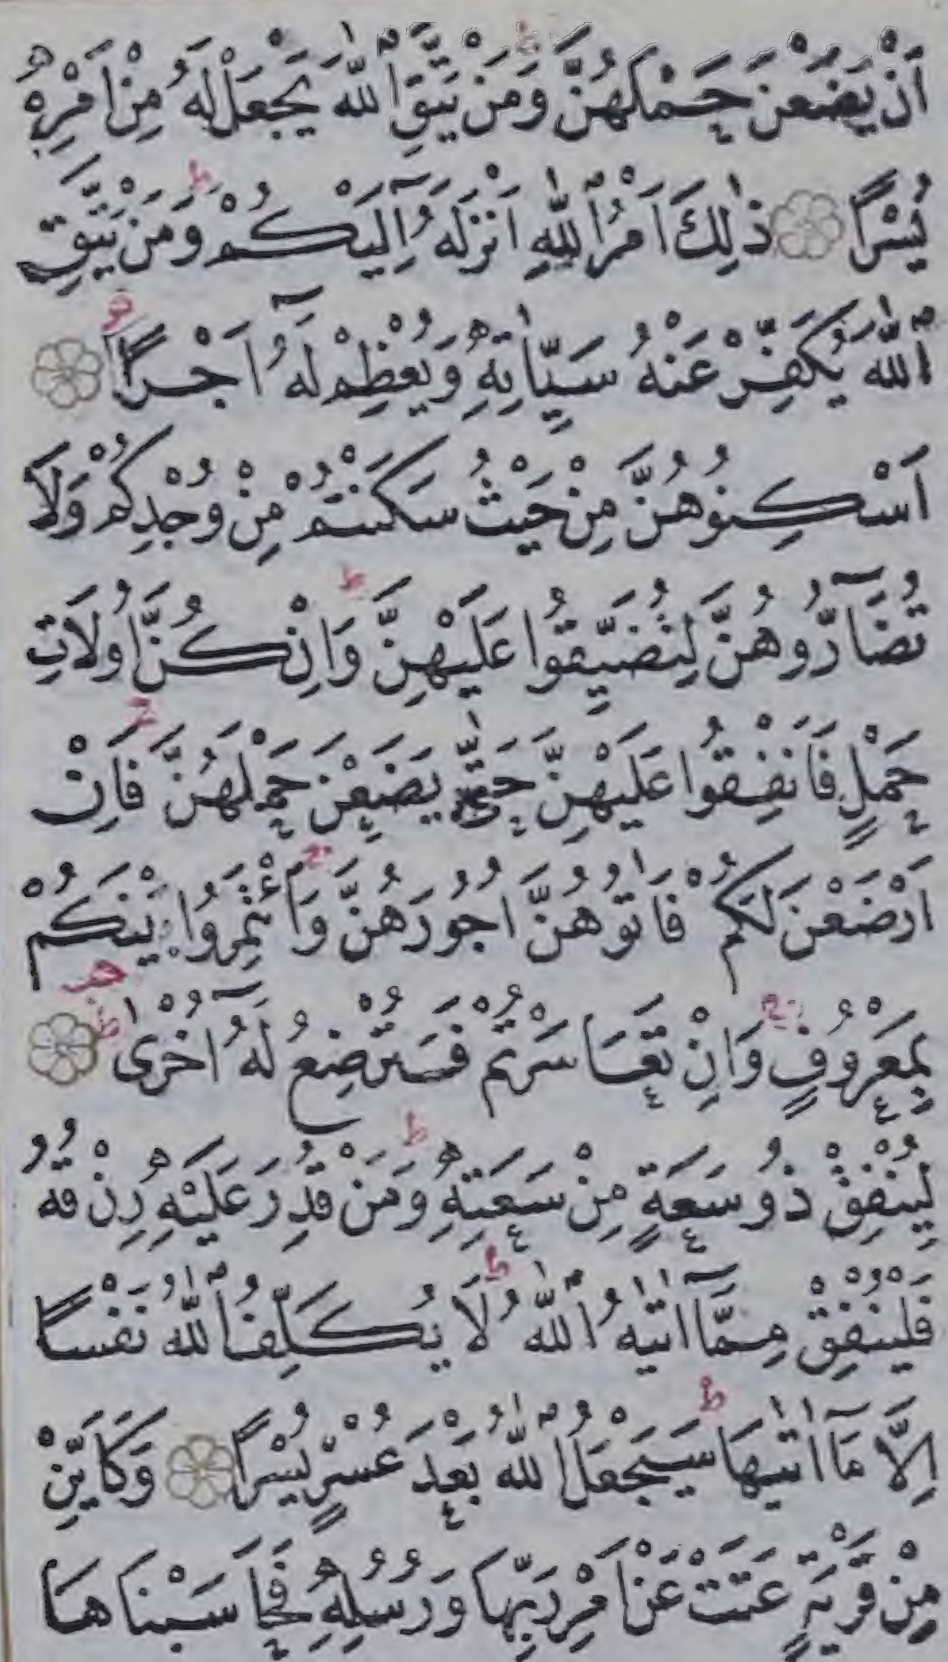 اَنْ يَضَعْنَ حَمْلَهُنَّ وَمَنْ يَتَّقِ اللّٰهَ يَجْعَلْ لَهُ مِنْ اَمْرِهٖ
يُسْرًا ذٰلِكَ اَمْرُ اللّٰهِ اَنْزَلَهُٓ اِلَيْكُمْ ط وَمَنْ يَتَّقِ
اللّٰهَ يُكَفِّرْ عَنْهُ سَيِّاٰتِهٖ وَيُعْظِمْ لَهُٓ اَجْرًا
اَسْكِنُوهُنَّ مِنْ حَيْثُ سَكَنْتُمْ مِنْ وُجْدِكُمْ وَلَا
تُضَٓارُّوهُنَّ لِتُضَيِّقُوا عَلَيْهِنَّ ط وَاِنْ كُنَّ اُولَاتِ
حَمْلٍ فَاَنْفِقُوا عَلَيْهِنَّ حَتّٰى يَضَعْنَ حَمْلَهُنَّ ج فَاِنْ
اَرْضَعْنَ لَكُمْ فَاٰتُوهُنَّ اُجُورَهُنَّ ج وَأْتَمِرُوا بَيْنَكُمْ
بِمَعْرُوفٍ ج وَاِنْ تَعَاسَرْتُمْ فَسَتُرْضِعُ لَهُٓ اُخْرٰى ط
لِيُنْفِقْ ذُو سَعَةٍ مِنْ سَعَتِهٖ ط وَمَنْ قُدِرَ عَلَيْهِ رِزْقُهُ
فَلْيُنْفِقْ مِمَّٓا اٰتٰيهُ اللّٰهُ ط لَا يُكَلِّفُ اللّٰهُ نَفْسًا
اِلَّا مَٓا اٰتٰيهَا ط سَيَجْعَلُ اللّٰهُ بَعْدَ عُسْرٍ يُسْرًا وَكَاَيِّنْ
مِنْ قَرْيَةٍ عَتَتْ عَنْ اَمْرِ رَبِّهَا وَرُسُلِهٖ فَحَاسَبْنَاهَا